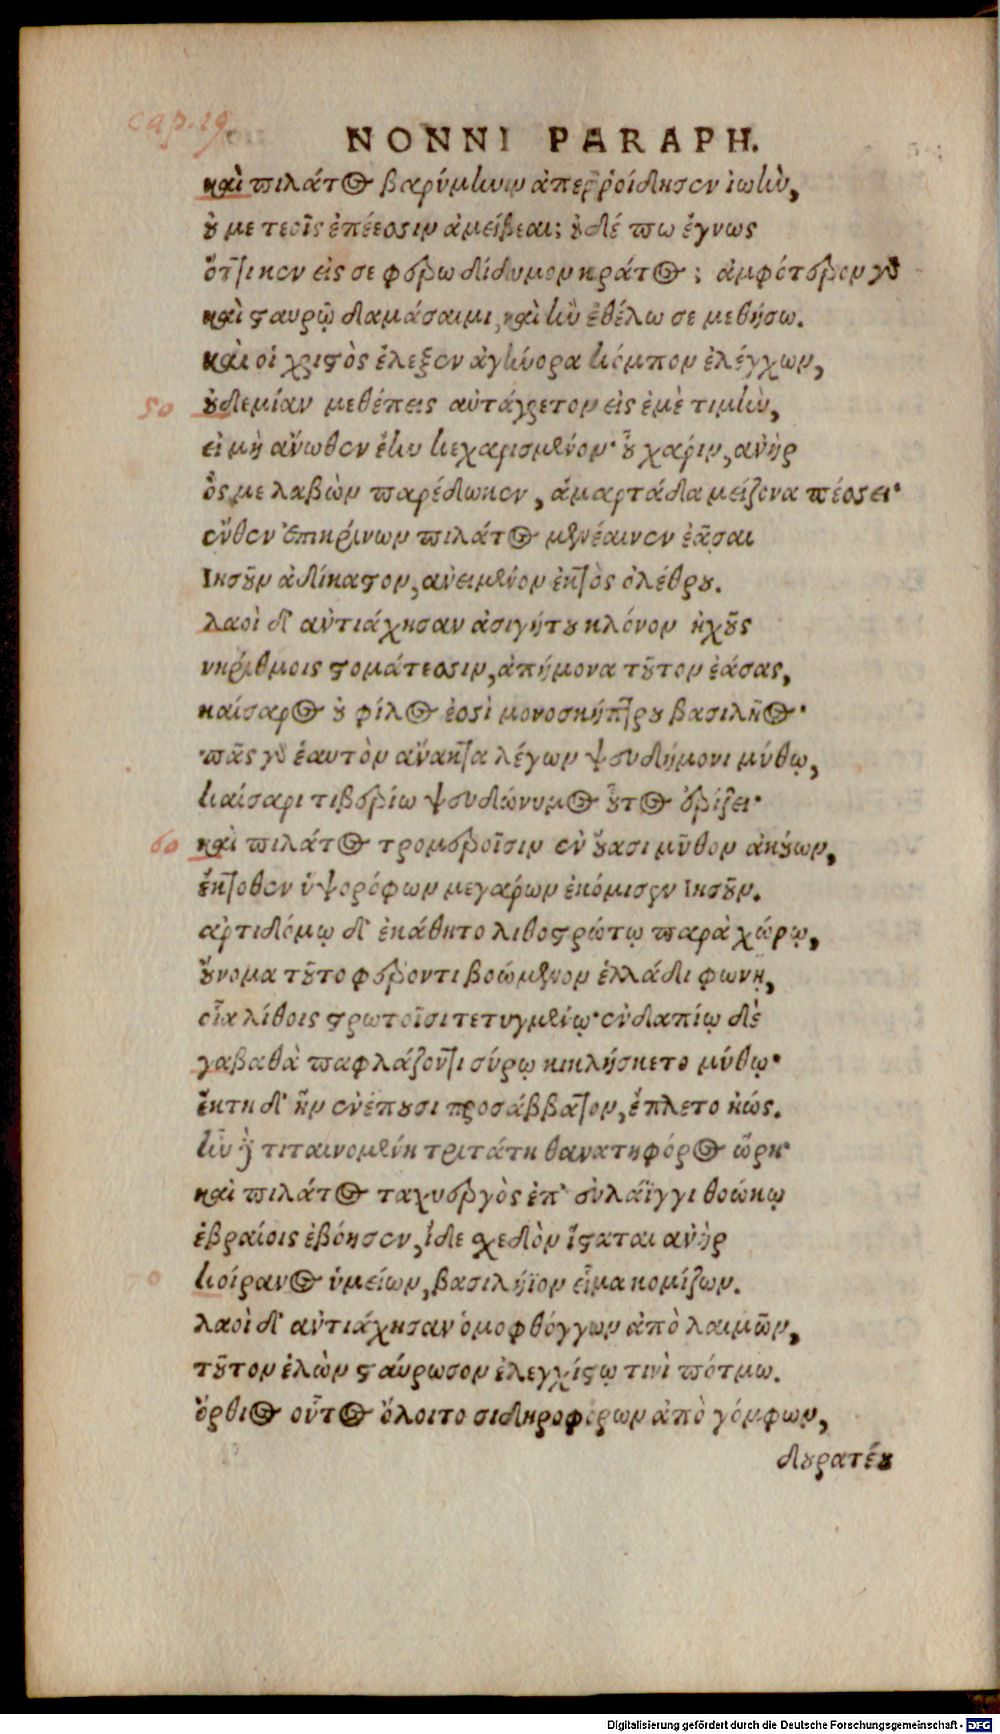 cap. 19.
NONNI PARAPH.
καὶ πιλάτος βαρύμηνιν ἀπεῤῥοίδησεν ἰωὴν,
οὔ με τεοῖς ἐπέεσσιν ἀμείβεαι; οὐδέ πω ἔγνως
ὅττι κεν εἰς σε φέρω δίδυμον κράτος; ἀμφότερον γὸ
καὶ σαυρῷ δαμάσαιμι, καὶ ἢν ἐθέλω σε μεθήσω.
καὶ οἱ χριστὸς ἔλεξεν ἀγήνορα κόμπον ἐλέγχων,
50 οὐδεμίαν μεθέπεις αὐτάγρετον εἰς ἐμὲ τιμὴν,
εἰ μὴ ἄνωθεν ἔην κεχαρισμένον· οὗ χάριν, ἀνὴρ
ὅς με λαβὼν παρέδωκεν, ἁμαρτάδα μείζονα πέσσει·
ἔνθεν ἐπικρίνων πιλάτος μενέαινεν ἐᾶσαι
Ιησοῦν ἀδίκαστον, ἀνειμένον ἐκτὸς ὀλέθρου.
λαοὶ δ' ἀντιάχησαν ἀσιγήτου κλόνον ἠχοῦς
νηρίθμοις στομάτεσσιν, ἀπήμονα τοῦτον ἐάσας,
καίσαρος οὐ φίλος ἐσσὶ μονοσκήπτρου βασιλῆος·
πᾶς γὸ ἑαυτὸν ἄνακτα λέγων ψευδήμονι μύθῳ,
καίσαρι τιβερίω ψευδώνυμος οὗτος ἐρίζει·
60 καὶ πιλάτος τρομεροῖσιν ἐν οὔασι μῦθον ἀκούων,
ἔκτοθεν ὑψορόφων μεγάρων ἐκόμισσεν Ιησοῦν.
ἀρτιδόμῳ δ' ἐκάθητο λιθοστρώτῳ παρὰ χώρῳ,
οὔνομα τοῦτο φέροντι βοώμενον ἑλλάδι φωνῇ,
οἷα λίθοις στρωτοῖσι τετυγμένῳ· ἐνδαπίῳ δὲ
γαβαθὰ παφλάζοντι σύρῳ κικλήσκετο μύθῳ·
ἕκτη δ' ἣν ἐνέπουσι προσάββατον, ἔπλετο ἠώς.
ἦν δὲ τιταινομένη τριτάτη θανατηφόρος ὥρη·
καὶ πιλάτος ταχυεργὸς ἐπ' εὐλάϊγγι θοώκῳ
ἑβραίοις ἐβόησεν, ἴδε σχεδὸν ἵσταται ἀνὴρ
70 κοίρανος ὑμείων, βασιλήϊον εἷμα κομίζων.
λαοὶ δ' ἀντιάχησαν ὁμοφθόγγων ἀπὸ λαιμῶν,
τοῦτον ἑλὼν σταύρωσον ἐλεγχίστῳ τινὶ πότμω.
ὄρθιος οὗτος ὄλοιτο σιδηροφόρων ἀπὸ γόμφων,
δουρατέου
Digitalisierung gefördert durch die Deutsche Forschungsgemeinschaft - DFG